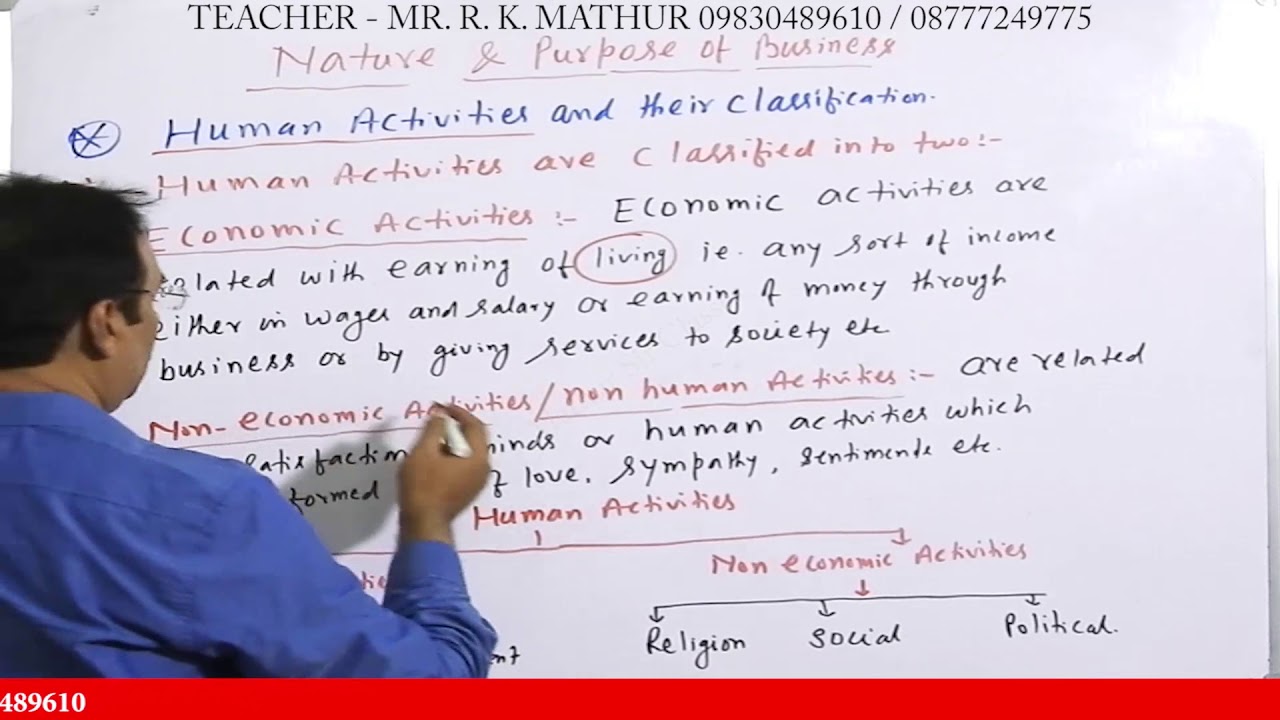 TEACHER - MR. R. K. MATHUR 09830489610 / 08777249775
Nature & Purpose of Business
Human Activities and their classification.
Human Activities are classified into two:-
Economic Activities :- Economic activities are
related with earning of living ie. any sort of income
either in wages and salary or earning of money through
business or by giving services to society etc
Non-economic Activities / non human Activities :- are related
minds or human activities which
love, sympathy, sentiments etc.
Human Activities
Non economic Activities
Religion social Political.
489610